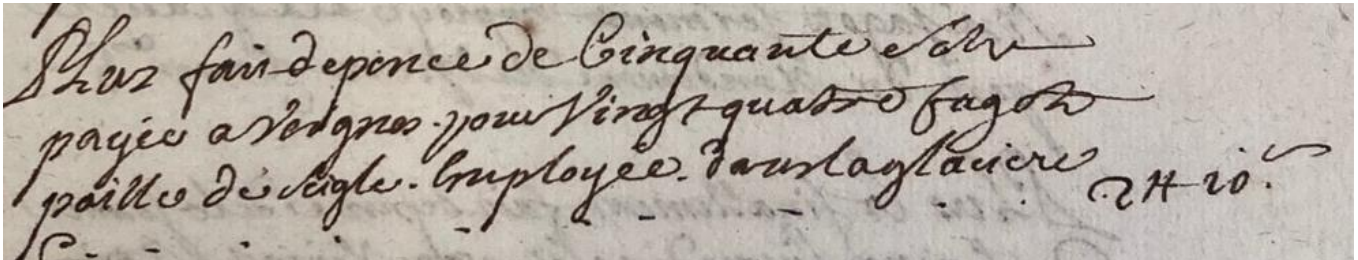 Plus fait depence de Cinquante sols
payée a Veignes pour Vingt quatre fagots
paille de seigle Employée dans la glaciere 2 ₶ 10 s